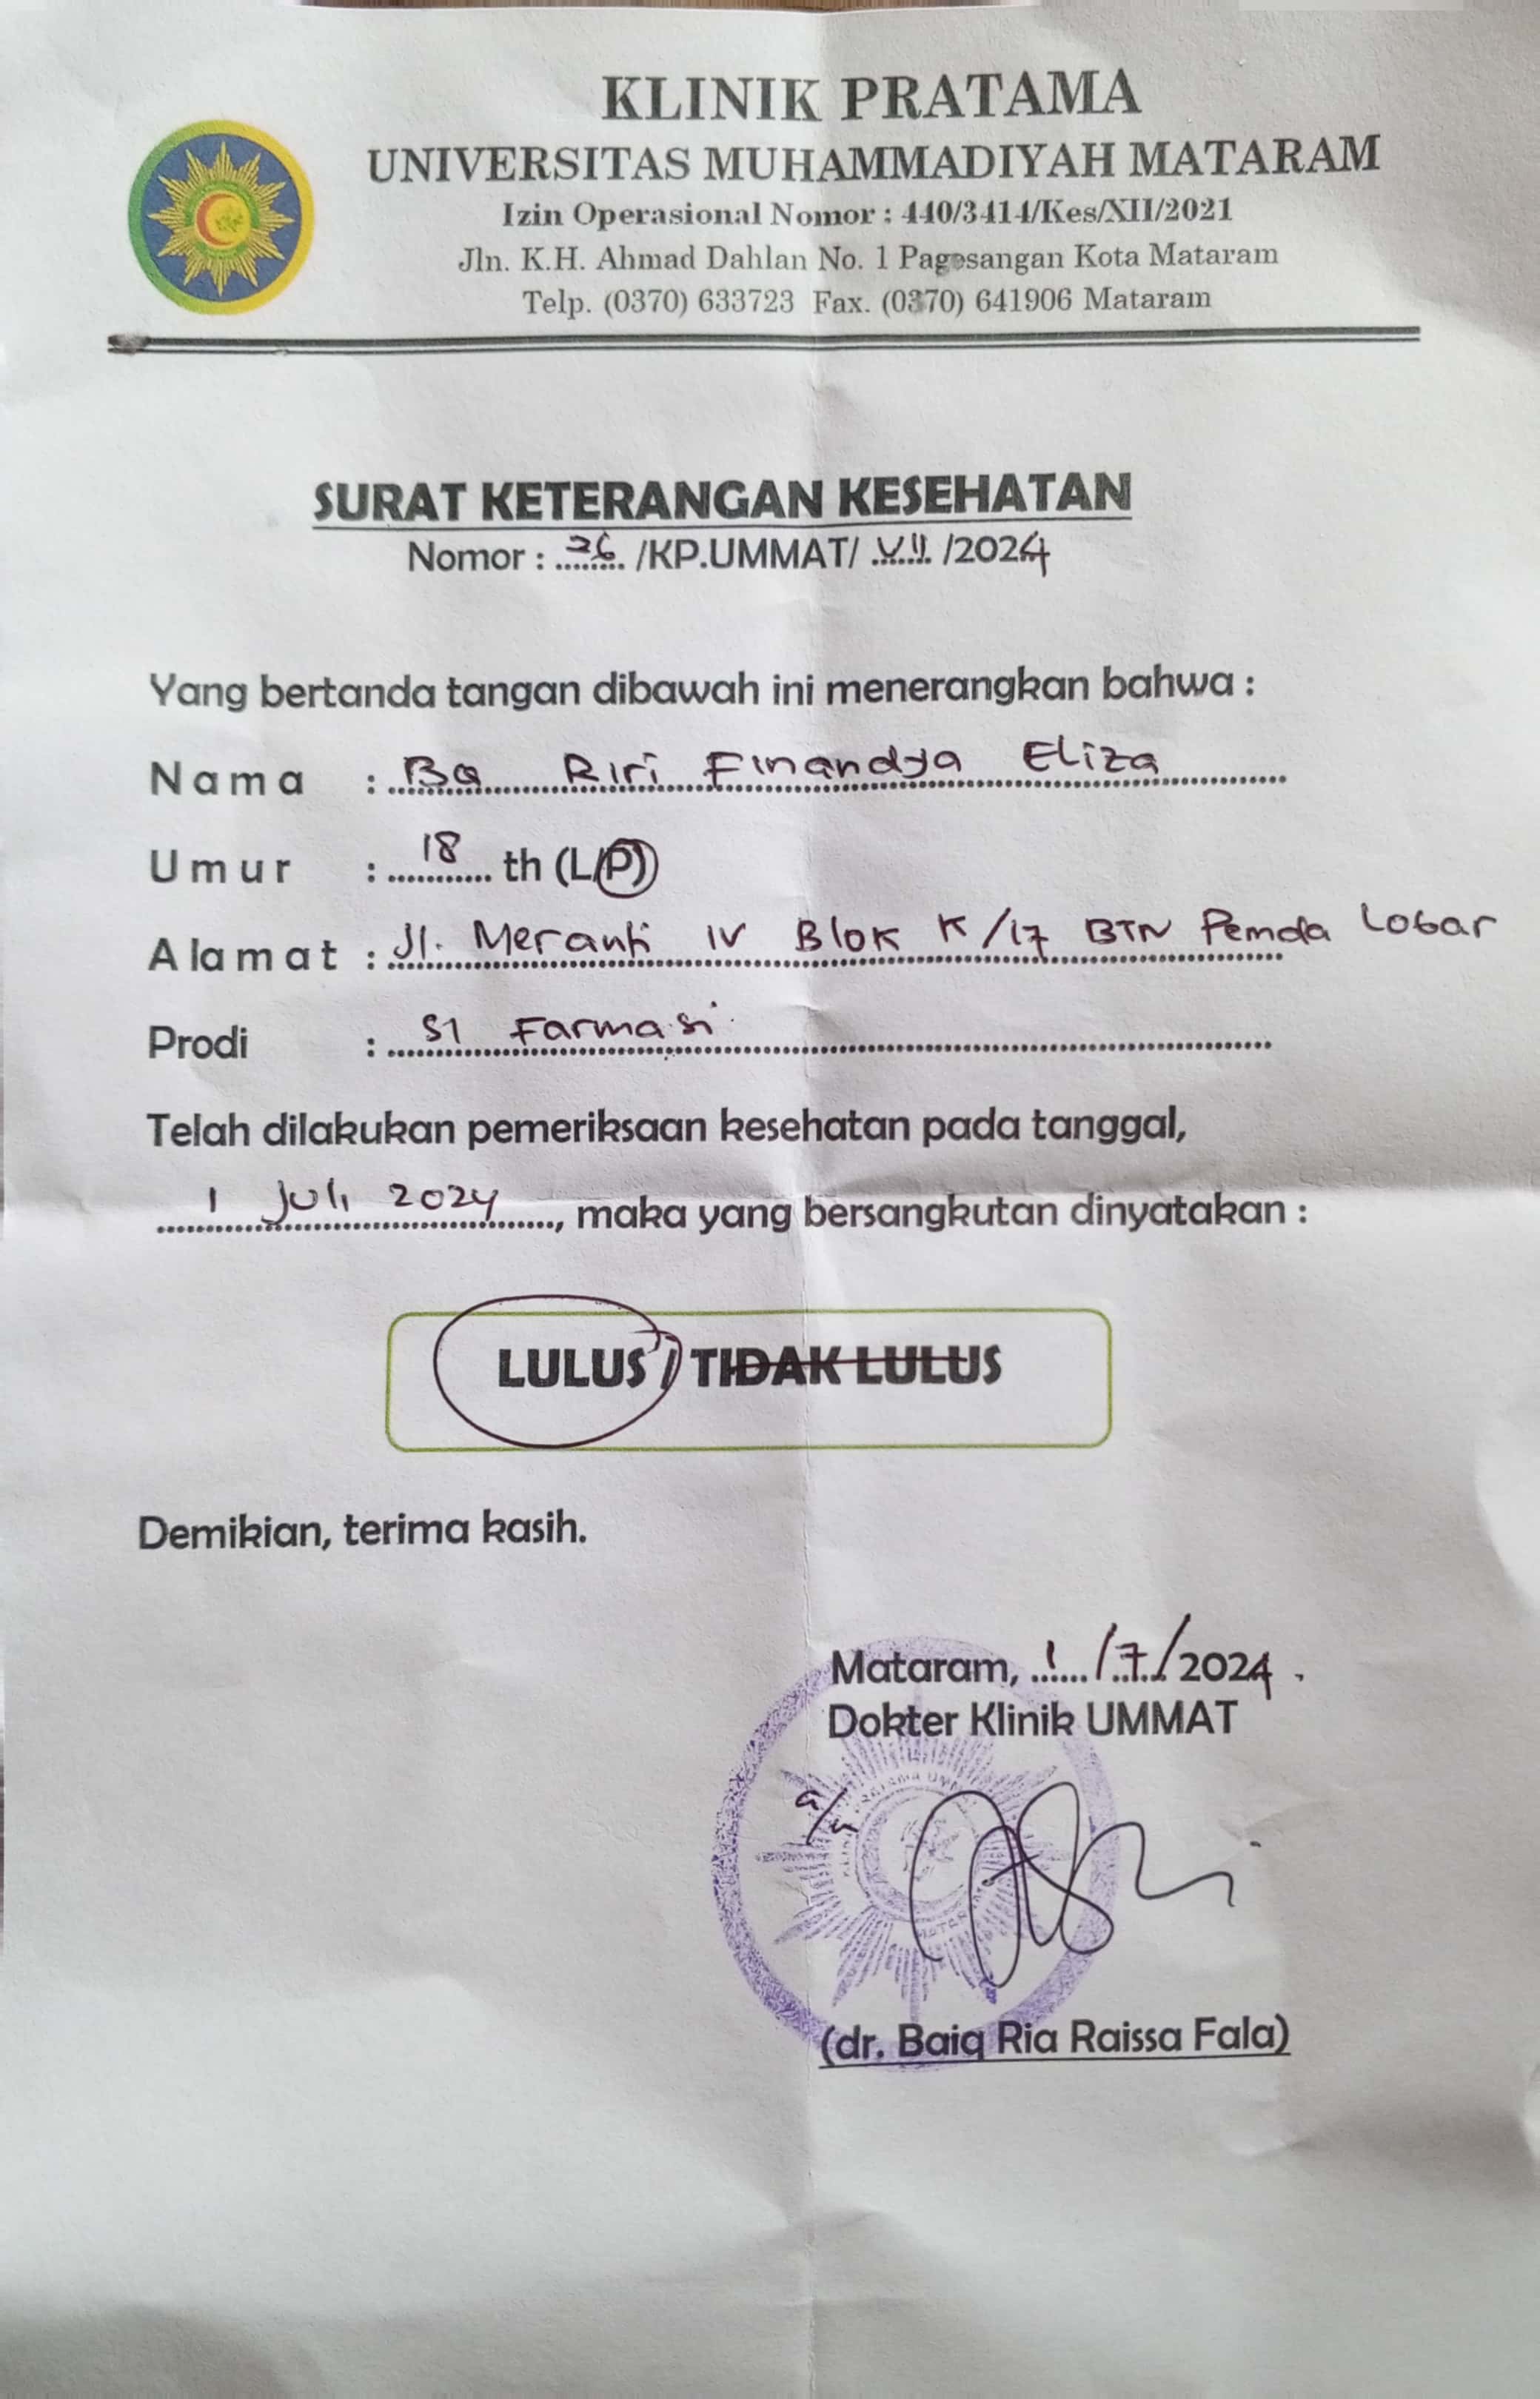 KLINIK PRATAMA
UNIVERSITAS MUHAMMADIYAH MATARAM
Izin Operasional Nomor : 440/3414/Kes/XII/2021
Jln. K.H. Ahmad Dahlan No. 1 Pagesangan Kota Mataram
Telp. (0370) 633723 Fax. (0370) 641906 Mataram
SURAT KETERANGAN KESEHATAN
Nomor : 36 /KP.UMMAT/ VII /2024
Yang bertanda tangan dibawah ini menerangkan bahwa :
Nama : BQ Riri Finandya Eliza
Umur : 18 th (L/P)
Alamat : Jl. Meranti IV Blok K/17 BTN Pemda Lobar
Prodi : S1 Farmasi
Telah dilakukan pemeriksaan kesehatan pada tanggal,
1 Juli 2024, maka yang bersangkutan dinyatakan :
LULUS / TIDAK LULUS
Demikian, terima kasih.
Mataram, 1/7/2024.
Dokter Klinik UMMAT
a/n
(dr. Baiq Ria Raissa Fala)